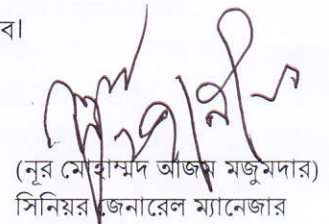 ব।
(নূর মোহাম্মদ আজম মজুমদার)
সিনিয়র জেনারেল ম্যানেজার